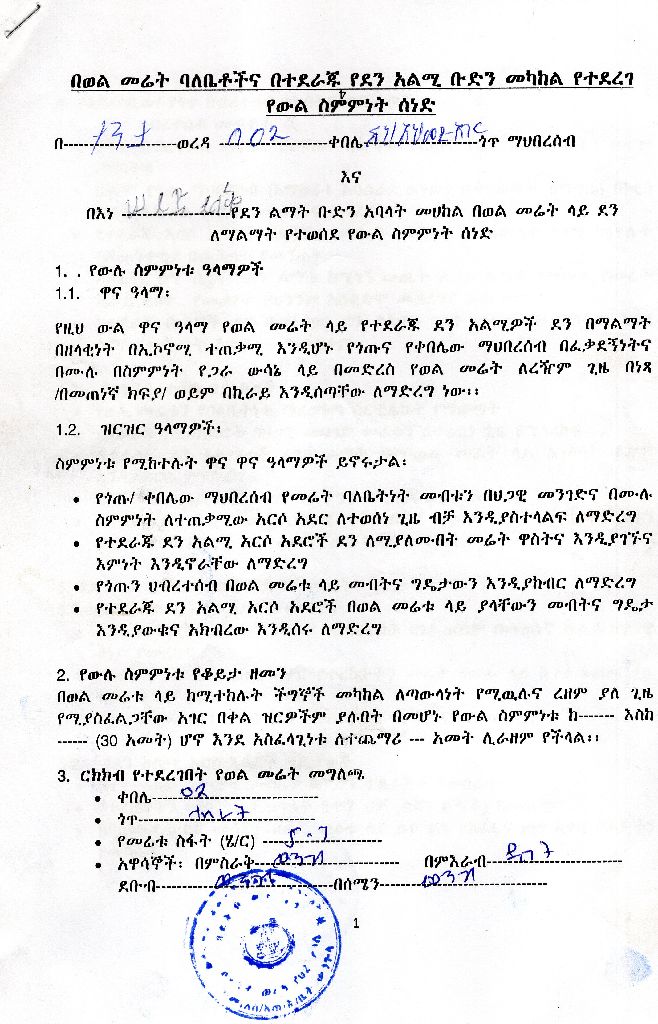 በወል መሬት ባለቤቶችና በተደራጁ የደን አልሚ ቡድን መካከል የተደረገ
የውል ስምምነት ሰነድ
በ---------------------ወረዳ --------------------ቀበሌ--------------------ጎጥ ማህበረሰብ
እና
በእነ ---------------------የደን ልማት ቡድን አባላት መሀከል በወል መሬት ላይ ደን
ለማልማት የተወሰደ የውል ስምምነት ሰነድ
1. . የውሉ ስምምነቱ ዓላማዎች
1.1. ዋና ዓላማ፡
የዚህ ውል ዋና ዓላማ የወል መሬት ላይ የተደራጁ ደን አልሚዎች ደን በማልማት
በዘላቂነት በኢኮኖሚ ተጠቃሚ እንዲሆኑ የጎጡና የቀበሌው ማህበረሰብ በፈቃደኝነትና
በሙሉ በስምምነት የጋራ ውሳኔ ላይ በመድረስ የወል መሬት ለረዥም ጊዜ በነጻ
/በመጠነኛ ክፍያ/ ወይም በኪራይ እንዲሰጣቸው ለማድረግ ነው፡፡
1.2. ዝርዝር ዓላማዎች፡
ስምምነቱ የሚከተሉት ዋና ዋና ዓላማዎች ይኖሩታል፡
• የጎጡ/ ቀበሌው ማህበረሰብ የመሬት ባለቤትነት መብቱን በህጋዊ መንገድና በሙሉ
ስምምነት ለተጠቃሚው አርሶ አደር ለተወሰነ ጊዜ ብቻ እንዲያስተላልፍ ለማድረግ
• የተደራጁ ደን አልሚ አርሶ አደሮች ደን ለሚያለሙበት መሬት ዋስትና እንዲያገኙና
እምነት እንዲኖራቸው ለማድረግ
• የጎጡን ህብረተሰብ በወል መሬቱ ላይ መብትና ግዴታውን እንዲያከብር ለማድረግ
• የተደራጁ ደን አልሚ አርሶ አደሮች በወል መሬቱ ላይ ያላቸውን መብትና ግዴታ
እንዲያውቁና አክብረው እንዲሰሩ ለማድረግ
2. የውሉ ስምምነቱ የቆይታ ዘመን
በወል መሬቱ ላይ ከሚተከሉት ችግኞች መካከል ለጣውላነት የሚዉሉና ረዘም ያለ ጊዜ
የሚያስፈልጋቸው አገር በቀል ዝርዎችም ያሉበት በመሆኑ የውል ስምምነቱ ከ------- እስከ
------ (30 አመት) ሆኖ እንደ አስፈላጊነቱ ለተጨማሪ --- አመት ሊራዘም የችላል፡፡
3. ርክክብ የተደረገበት የወል መሬት መግለጫ
• ቀበሌ---02--------------------
• ጎጥ----------------------------
• የመሬቱ ስፋት (ሄ/ር) ---------------
• አዋሳኞች፡ በምስራቅ---ወንዝ------------ በምእራብ---------------------
ደቡብ---------------------------በሰሜን------ወንዝ---------------
1